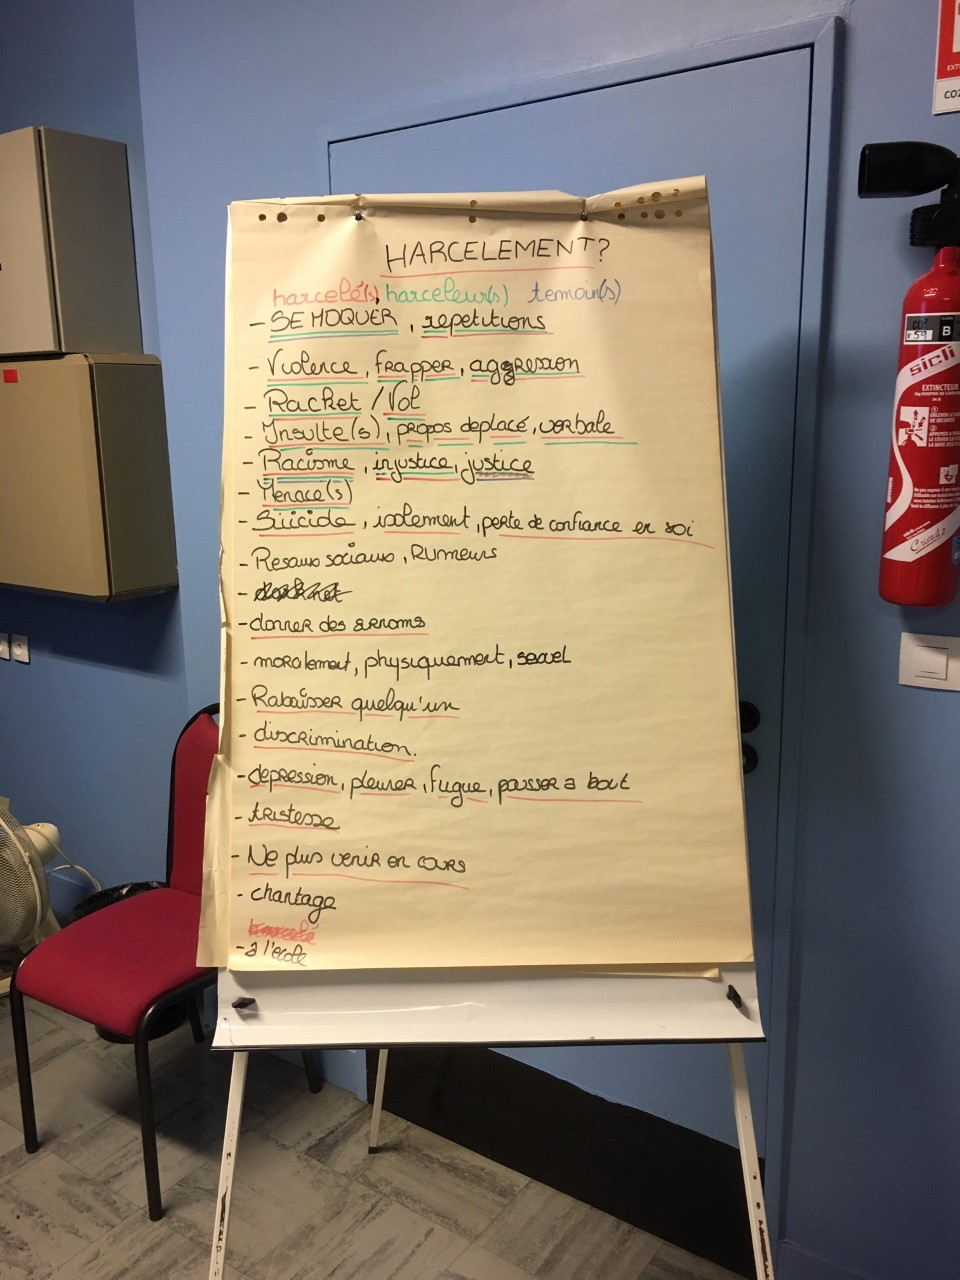 HARCELEMENT?
harcelé(s), harceleur(s) temoin(s)
- SE MOQUER, repetitions
- Violence, frapper, aggression
- Racket / Vol
- Insulte(s), propos deplacé, verbale
- Racisme, injustice, justice
- Menace(s)
- Suicide, isolement, perte de confiance en soi
- Resaux sociaux, Rumeurs
- donner des srnoms
- moralement, physiquement, sexuel
- Rabaisser quelqu'un
- discrimination.
- depression, pleurer, fugue, pousser a bout
- tristesse
- Ne plus venir en cours
- chantage
- a l'école
CO2
B
sicli
EXTINCTEUR